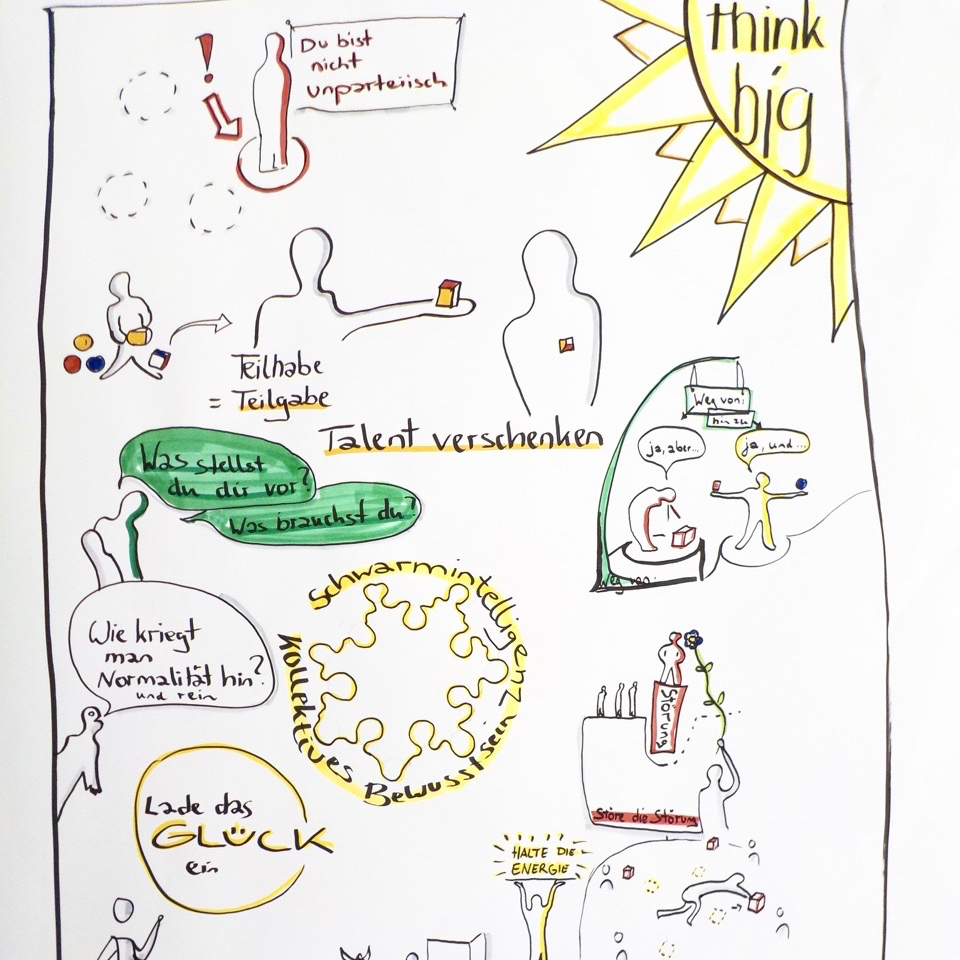 think
big
Du bist
nicht
unparteiisch
Teilhabe
= Teilgabe
Talent verschenken
Weg von:
hin zu
ja, aber...
ja, und...
Weg von:
Was stellst
du dir vor?
Was brauchst du?
Schwarmintelligenz
Kollektives Bewusstsein zu
Wie kriegt
man
Normalität hin?
und rein
Störung
Störe die Störung
Lade das
GLÜCK
ein
HALTE DIE
ENERGIE